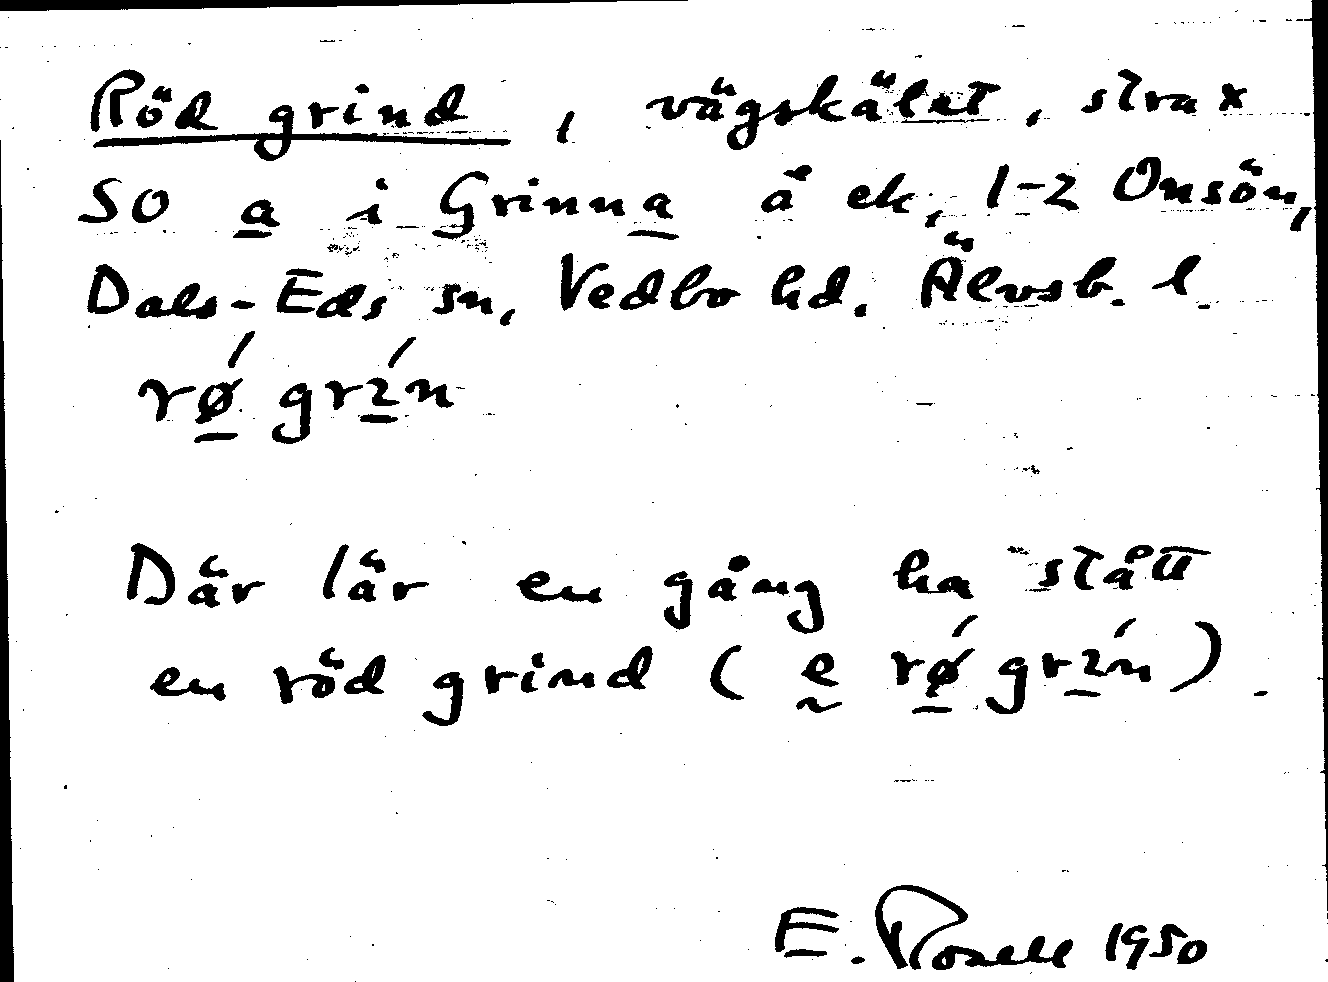 Röd grind, vägskälet, strax
SO a i Grinna å ek, 1-2 Onsön,
Dals-Eds sn, Vedbo hd. Älvsb. l.
rǿ grín
Där lär en gång ha stått
en röd grind (e rǿ grín).
E. Rosell 1950